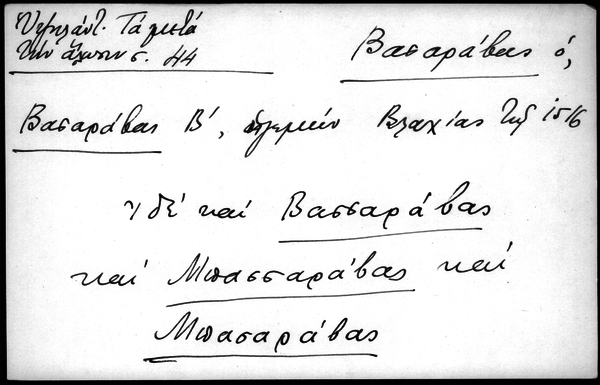 Ὑψηλάντ. Τὰ μετὰ
τὴν ἅλωσιν σ. 44
Βασαράβας ὁ,
Βασαράβας Β΄, ἡγεμὼν Βλαχίας τῷ 1516
ἰδὲ καὶ Βασσαράβας
καὶ Μπασσαράβας καὶ
Μπασαράβας